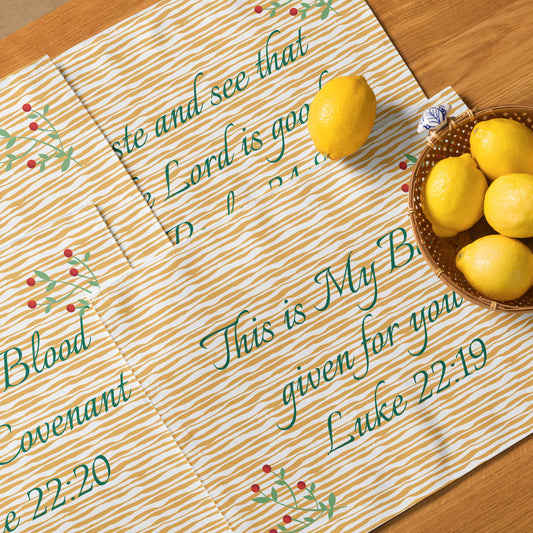 and see that
Lord is
This is My
given for you
Luke 22:19
Blood
Covenant
22:20